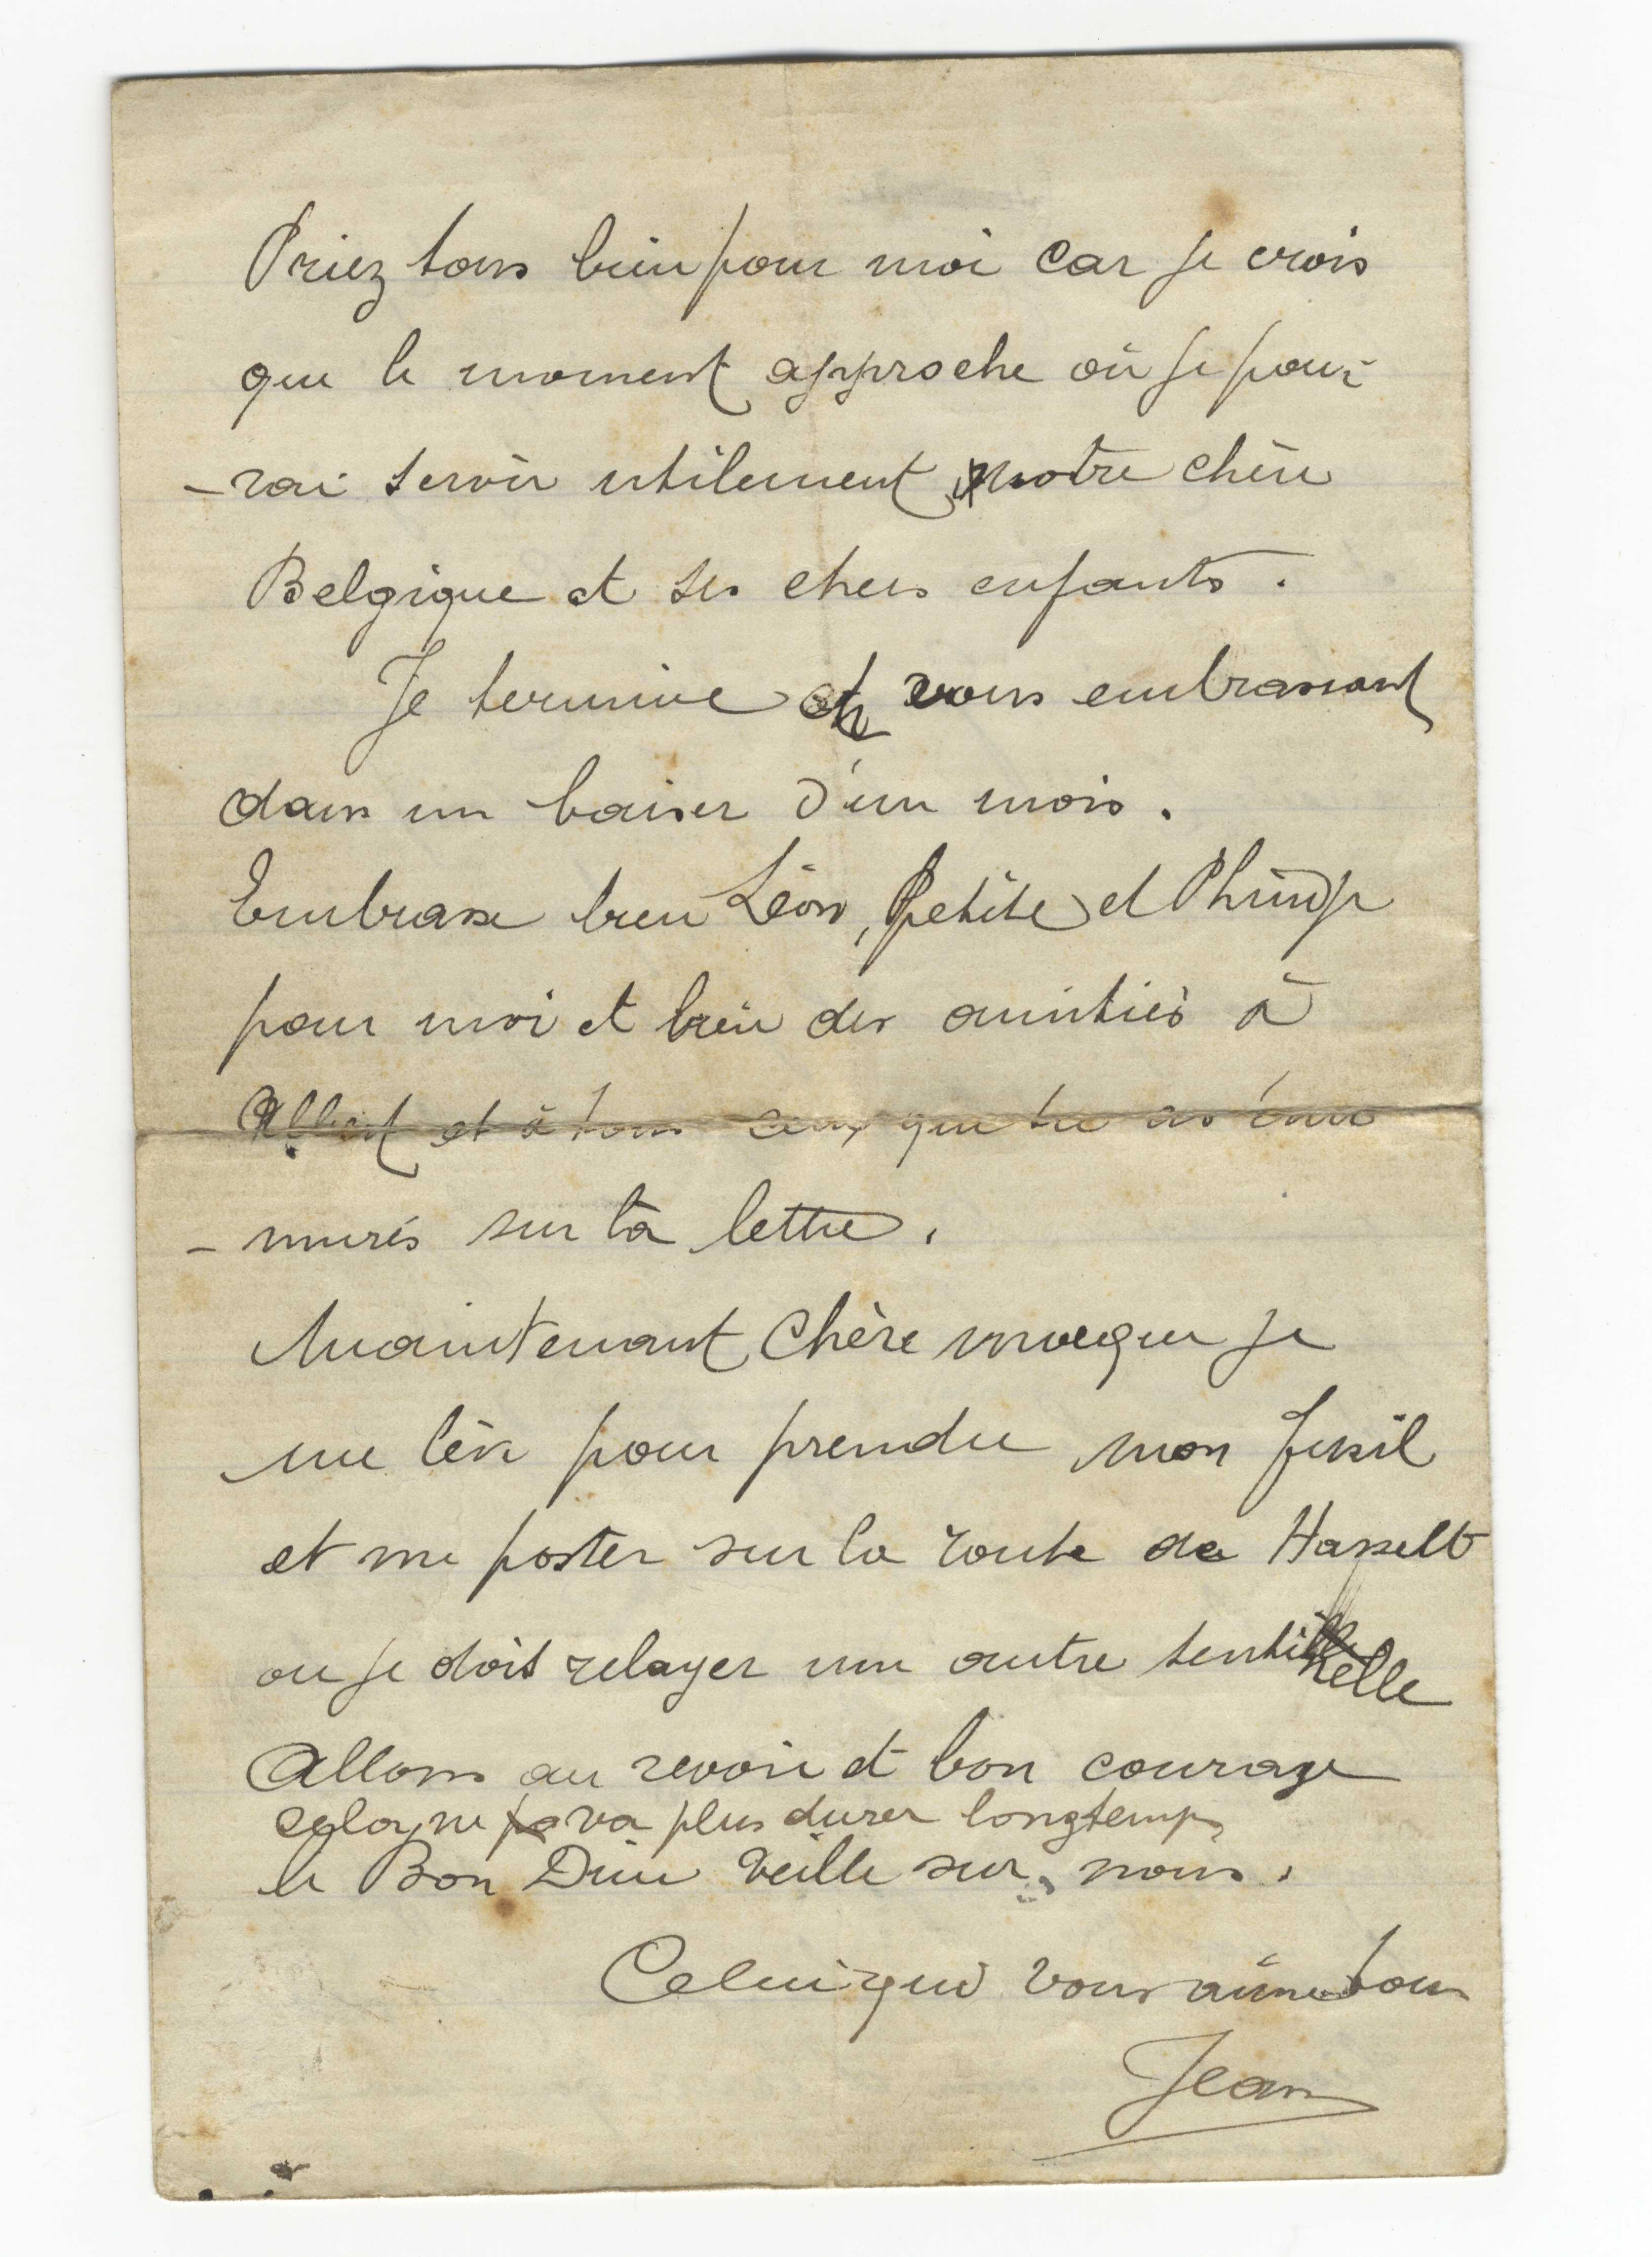 Priez tous bien pour moi car je crois
que le moment approche où je pour-
-rai servir utilement notre chère
Belgique et ses chers enfants.
Je termine en vous embrassant
dans un baiser d'un mois.
Embrasse bien Léon, Petite et Phinop
pour moi et bien des amitiés à
Albert et à tous ceux que tu as énu
-murés sur ta lettre.
Maintenant Chère il faut que je
me lève pour prendre mon fusil
et me poster sur la route de Hasselt
ou je dois relayer une autre sentinelle
Allons au revoir et bon courage
cela ne va plus durer longtemps
le Bon Dieu veille sur nous.
Celui qui vous aime tous
Jean